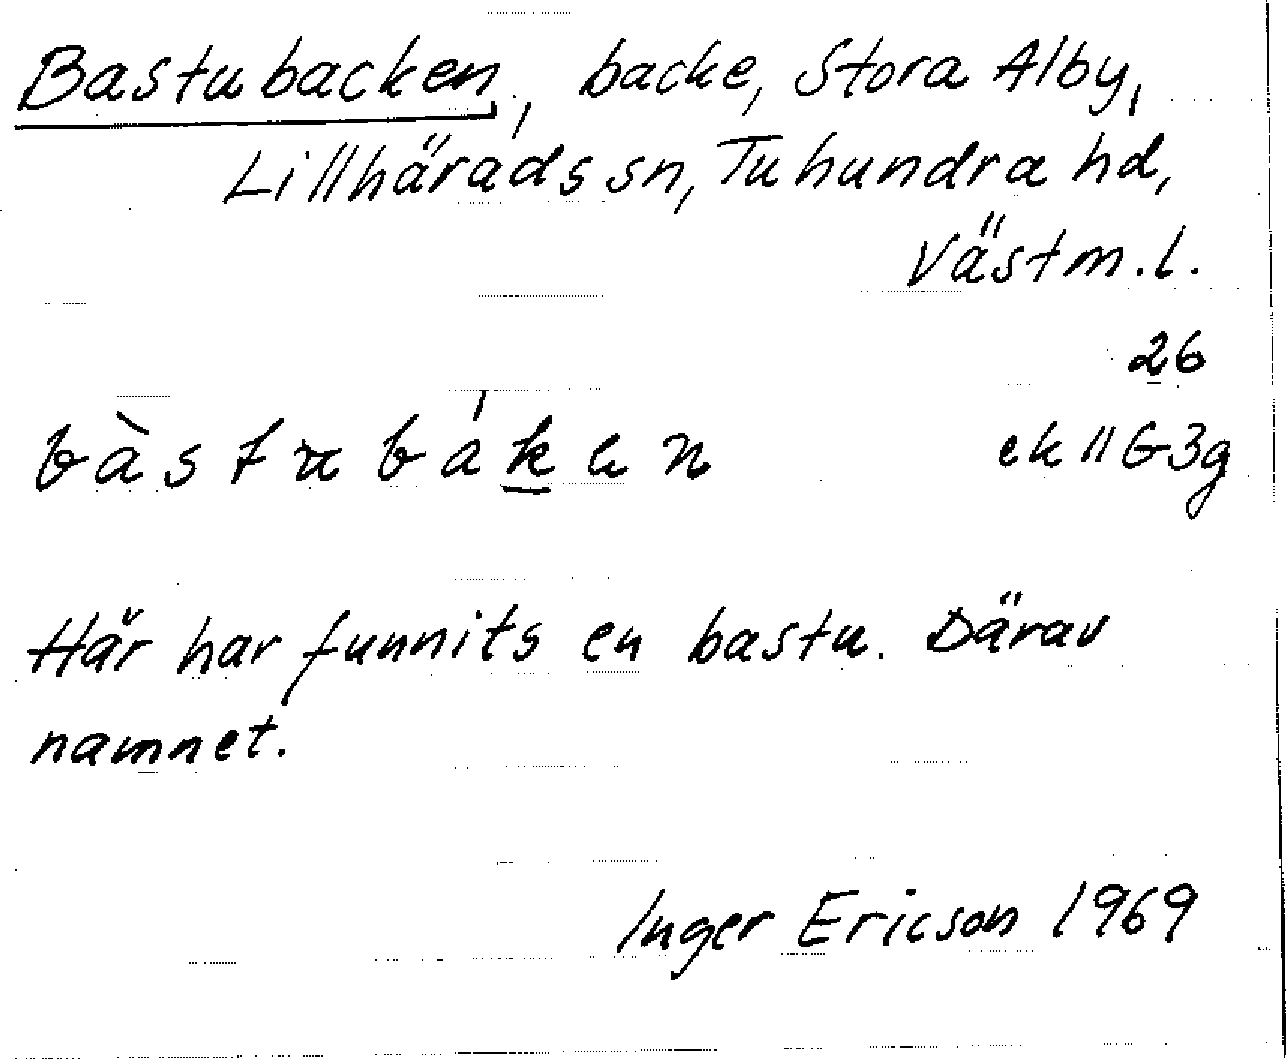 Bastubacken, backe, Stora Alby,
Lillhärads sn, Tuhundra hd,
Västm. l.
26
bàstubákən ek 11G3g
Här har funnits en bastu. Därav
namnet.
Inger Ericson 1969